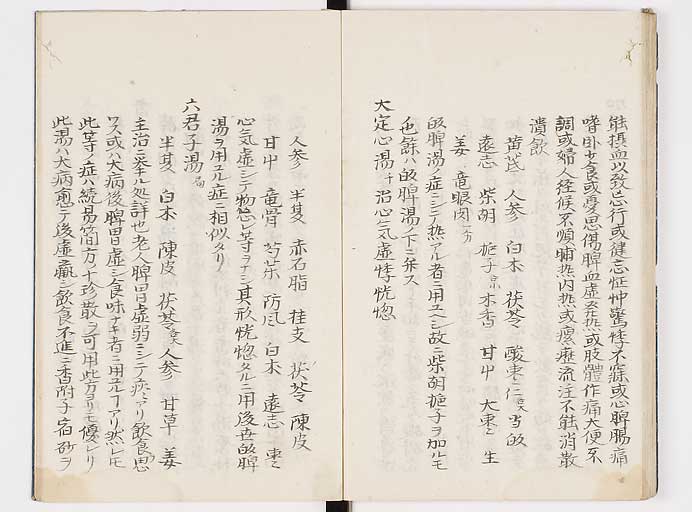 能摂血以致忘行或健忘怔忡驚悸不寐或心脾腸痛
嗜卧少食或憂思傷脾血虚発热或肢體作痛大便不
調或婦人経候不順晡热内热或瘰癧流注不能消散
潰歛
黄芪 人参 白朮 茯苓 酸棗仁 当皈
遠志 柴胡 梔子 木香 甘艸 大棗 生
姜 竜眼肉
皈脾湯ノ症ニシテ热アル者ニ用ユヘシ故ニ柴胡梔子ヲ加ルモ
也餘ハ皈脾湯ノ下ニ弁ス
大定心湯 千 治心気虚悸恍惚
人参 半夏 赤石脂 桂支 茯苓 陳皮
甘艸 竜骨 芎 防风 白朮 遠志 棗
心気虚シテ物ヲナシ其形恍惚タルニ用後世ノ皈脾
湯ヲ用ユル症ニ相似タリ
六君子湯 局
半夏 白朮 陳皮 茯苓 人参 甘草 姜
主治ニ挙ル処詳也老人脾胃虚弱ニシテ痰アリ飲食思
ワス或ハ大病後脾胃虚シ食味ナキ者ニ用ユルアリ然レモ
此等ノ症ハ続易簡方ノ十珍散ヲ可用此方ヨリモ優レリ
此湯ハ大病愈テ後虚羸シ飲食不進ニ香附子宿砂ヲ